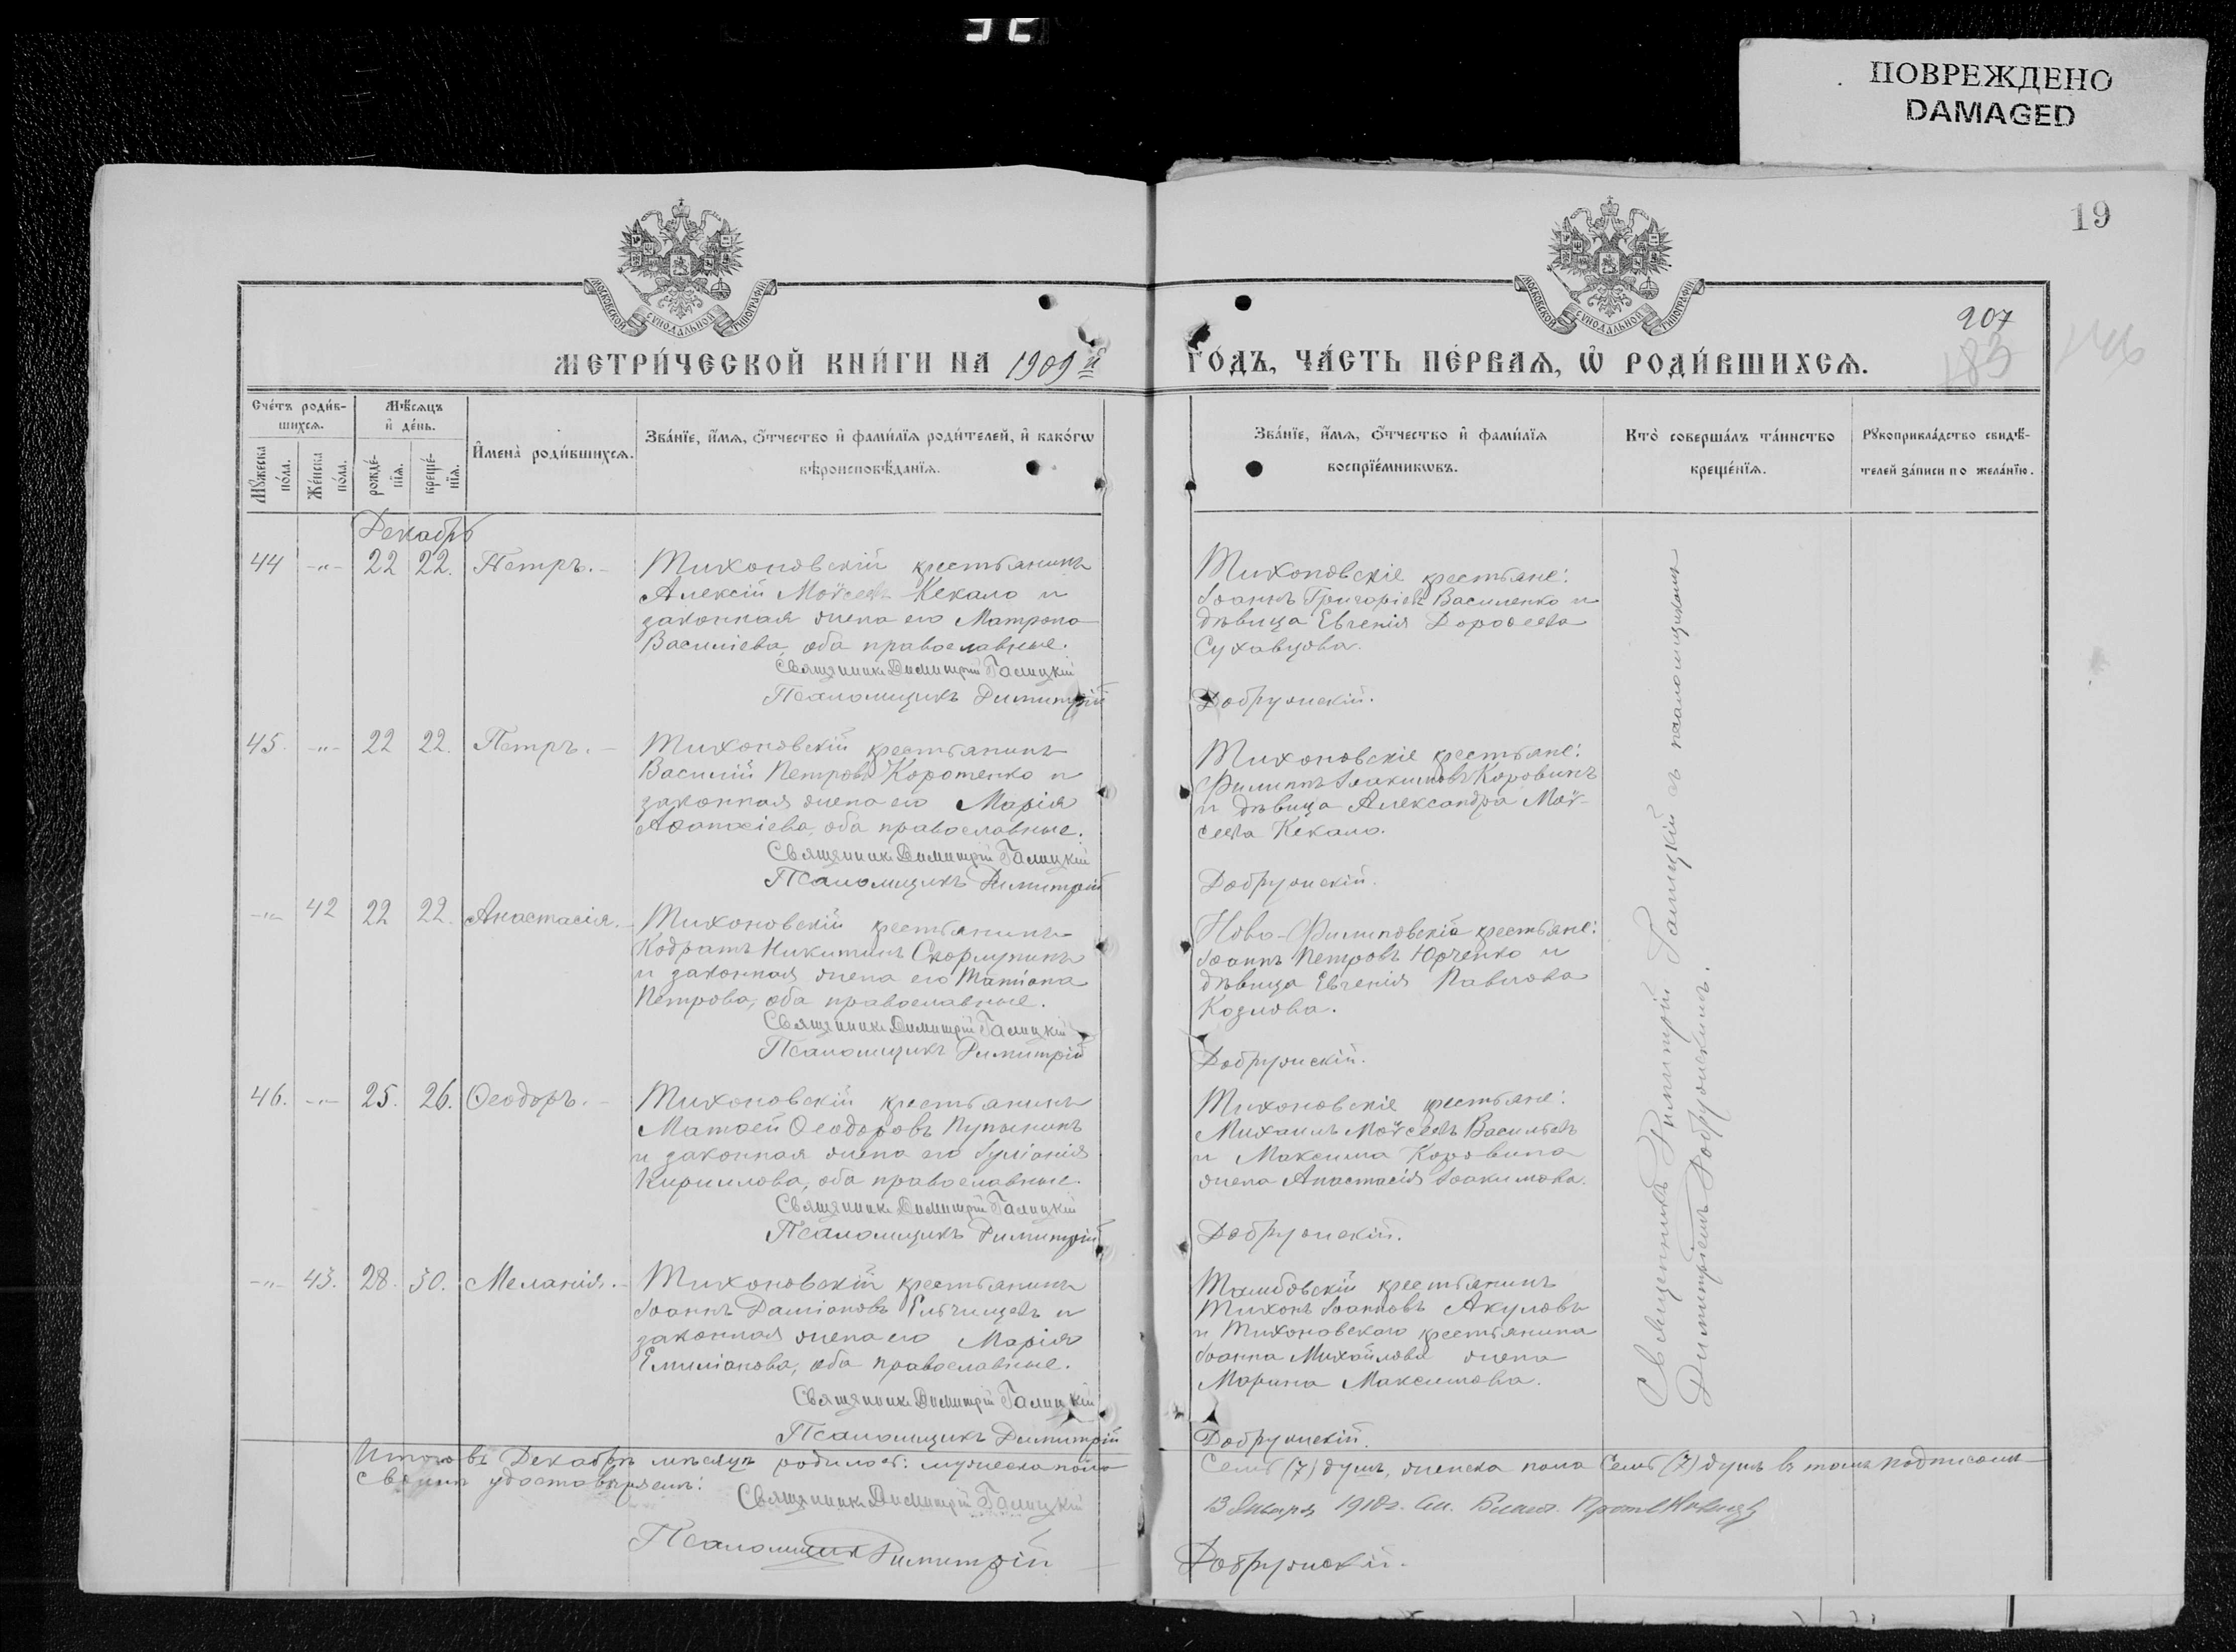 ПОВРЕЖДЕНО
DAMAGED
19
207
183
МОСКОВСКОЙ СѴНОДАЛЬНОЙ ТИПОГРАФІИ
МОСКОВСКОЙ СѴНОДАЛЬНОЙ ТИПОГРАФІИ
МЕТРИ́ЧЕСКОЙ КНИ́ГИ НА 1909й ГО́ДЪ, ЧА́СТЬ ПЕ́РВАЯ, Ѡ҆ РОДИ́ВШИХСЯ.
Сче́тъ роди́вшихся.
Мѹ́жеска по́ла.
Же́нска по́ла.
Мѣ́сяцъ и҆ де́нь.
рожде́нїя.
креще́нїя.
И҆мена̀ роди́вшихся.
Зва́нїе, и҆́мя, ѻ҆́тчество и҆ фами́лїя роди́телей, и҆ како́гѡ
вѣроисповѣ́данїя.
Зва́нїе, и҆́мя, ѻ҆́тчество и҆ фами́лїя
воспрїе́мникѡвъ.
Кто̀ соверша́лъ та́инство
креще́нїя.
Рѹкоприкла́дство свидѣ́-
телей за́писи по жела́нїю.
Декабрь
44 -"- 22 22. Петръ.
Тихоновскій крестьянинъ
Алексій Моѵсеевъ Кекало и
законная жена его Матрона
Василіева, оба православные.
Священникъ Димитрій Галицкій
Псаломщикъ Димитрій Добружскій.
Тихоновскіе крестьяне:
Іоаннъ Григоріевъ Василенко и
дѣвица Евгенія Дороѳеева
Сухавцова.
45. -"- 22 22. Петръ.
Тихоновскій крестьянинъ
Василій Петровъ Коротенко и
законная жена его Марія
Аѳанасіева, оба православные.
Священникъ Димитрій Галицкій
Псаломщикъ Димитрій Добружскій.
Тихоновскіе крестьяне:
Филиппъ Іоакимовъ Коровинъ
и дѣвица Александра Моѵ-
сеева Кекало.
-"- 42 22 22. Анастасія.
Тихоновскій крестьянинъ
Кодратъ Никитинъ Скормунинъ
и законная жена его Татіана
Петрова, оба православные.
Священникъ Димитрій Галицкій
Псаломщикъ Димитрій Добружскій.
Ново-Филиповскіе крестьяне:
Іоаннъ Петровъ Юрченко и
дѣвица Евгенія Павлова
Козлова.
46. -"- 25. 26. Ѳеодоръ.
Тихоновскій крестьянинъ
Матѳей Ѳеодоровъ Пупынинъ
и законная жена его Іуліанія
Кириллова, оба православные.
Священникъ Димитрій Галицкій
Псаломщикъ Димитрій Добружскій.
Тихоновскіе крестьяне:
Михаилъ Моѵсеевъ Васильевъ
и Максима Коровина
жена Анастасія Іоакимова.
-"- 43. 28. 30. Меланія.
Тихоновскій крестьянинъ
Іоаннъ Даміановъ Ельчищевъ и
законная жена его Марія
Емиліанова, оба православные.
Священникъ Димитрій Галицкій
Псаломщикъ Димитрій Добружскій.
Тамбовскій крестьянинъ
Тихонъ Іоанновъ Акуловъ
и Тихоновскаго крестьянина
Іоанна Михайлова жена
Марина Максимова.
Священникъ Димитрій Галицкій съ псаломщикомъ
Димитріемъ Добружскимъ.
Итого въ Декабрѣ мѣсяцѣ родилось: мужеска пола семь (7) душъ, женска пола семь (7) душъ въ томъ подписомъ
своимъ удостовѣряемъ:
Священникъ Димитрій Галицкій
13 Января 1910 г.
Псаломщикъ Димитрій Добружскій.